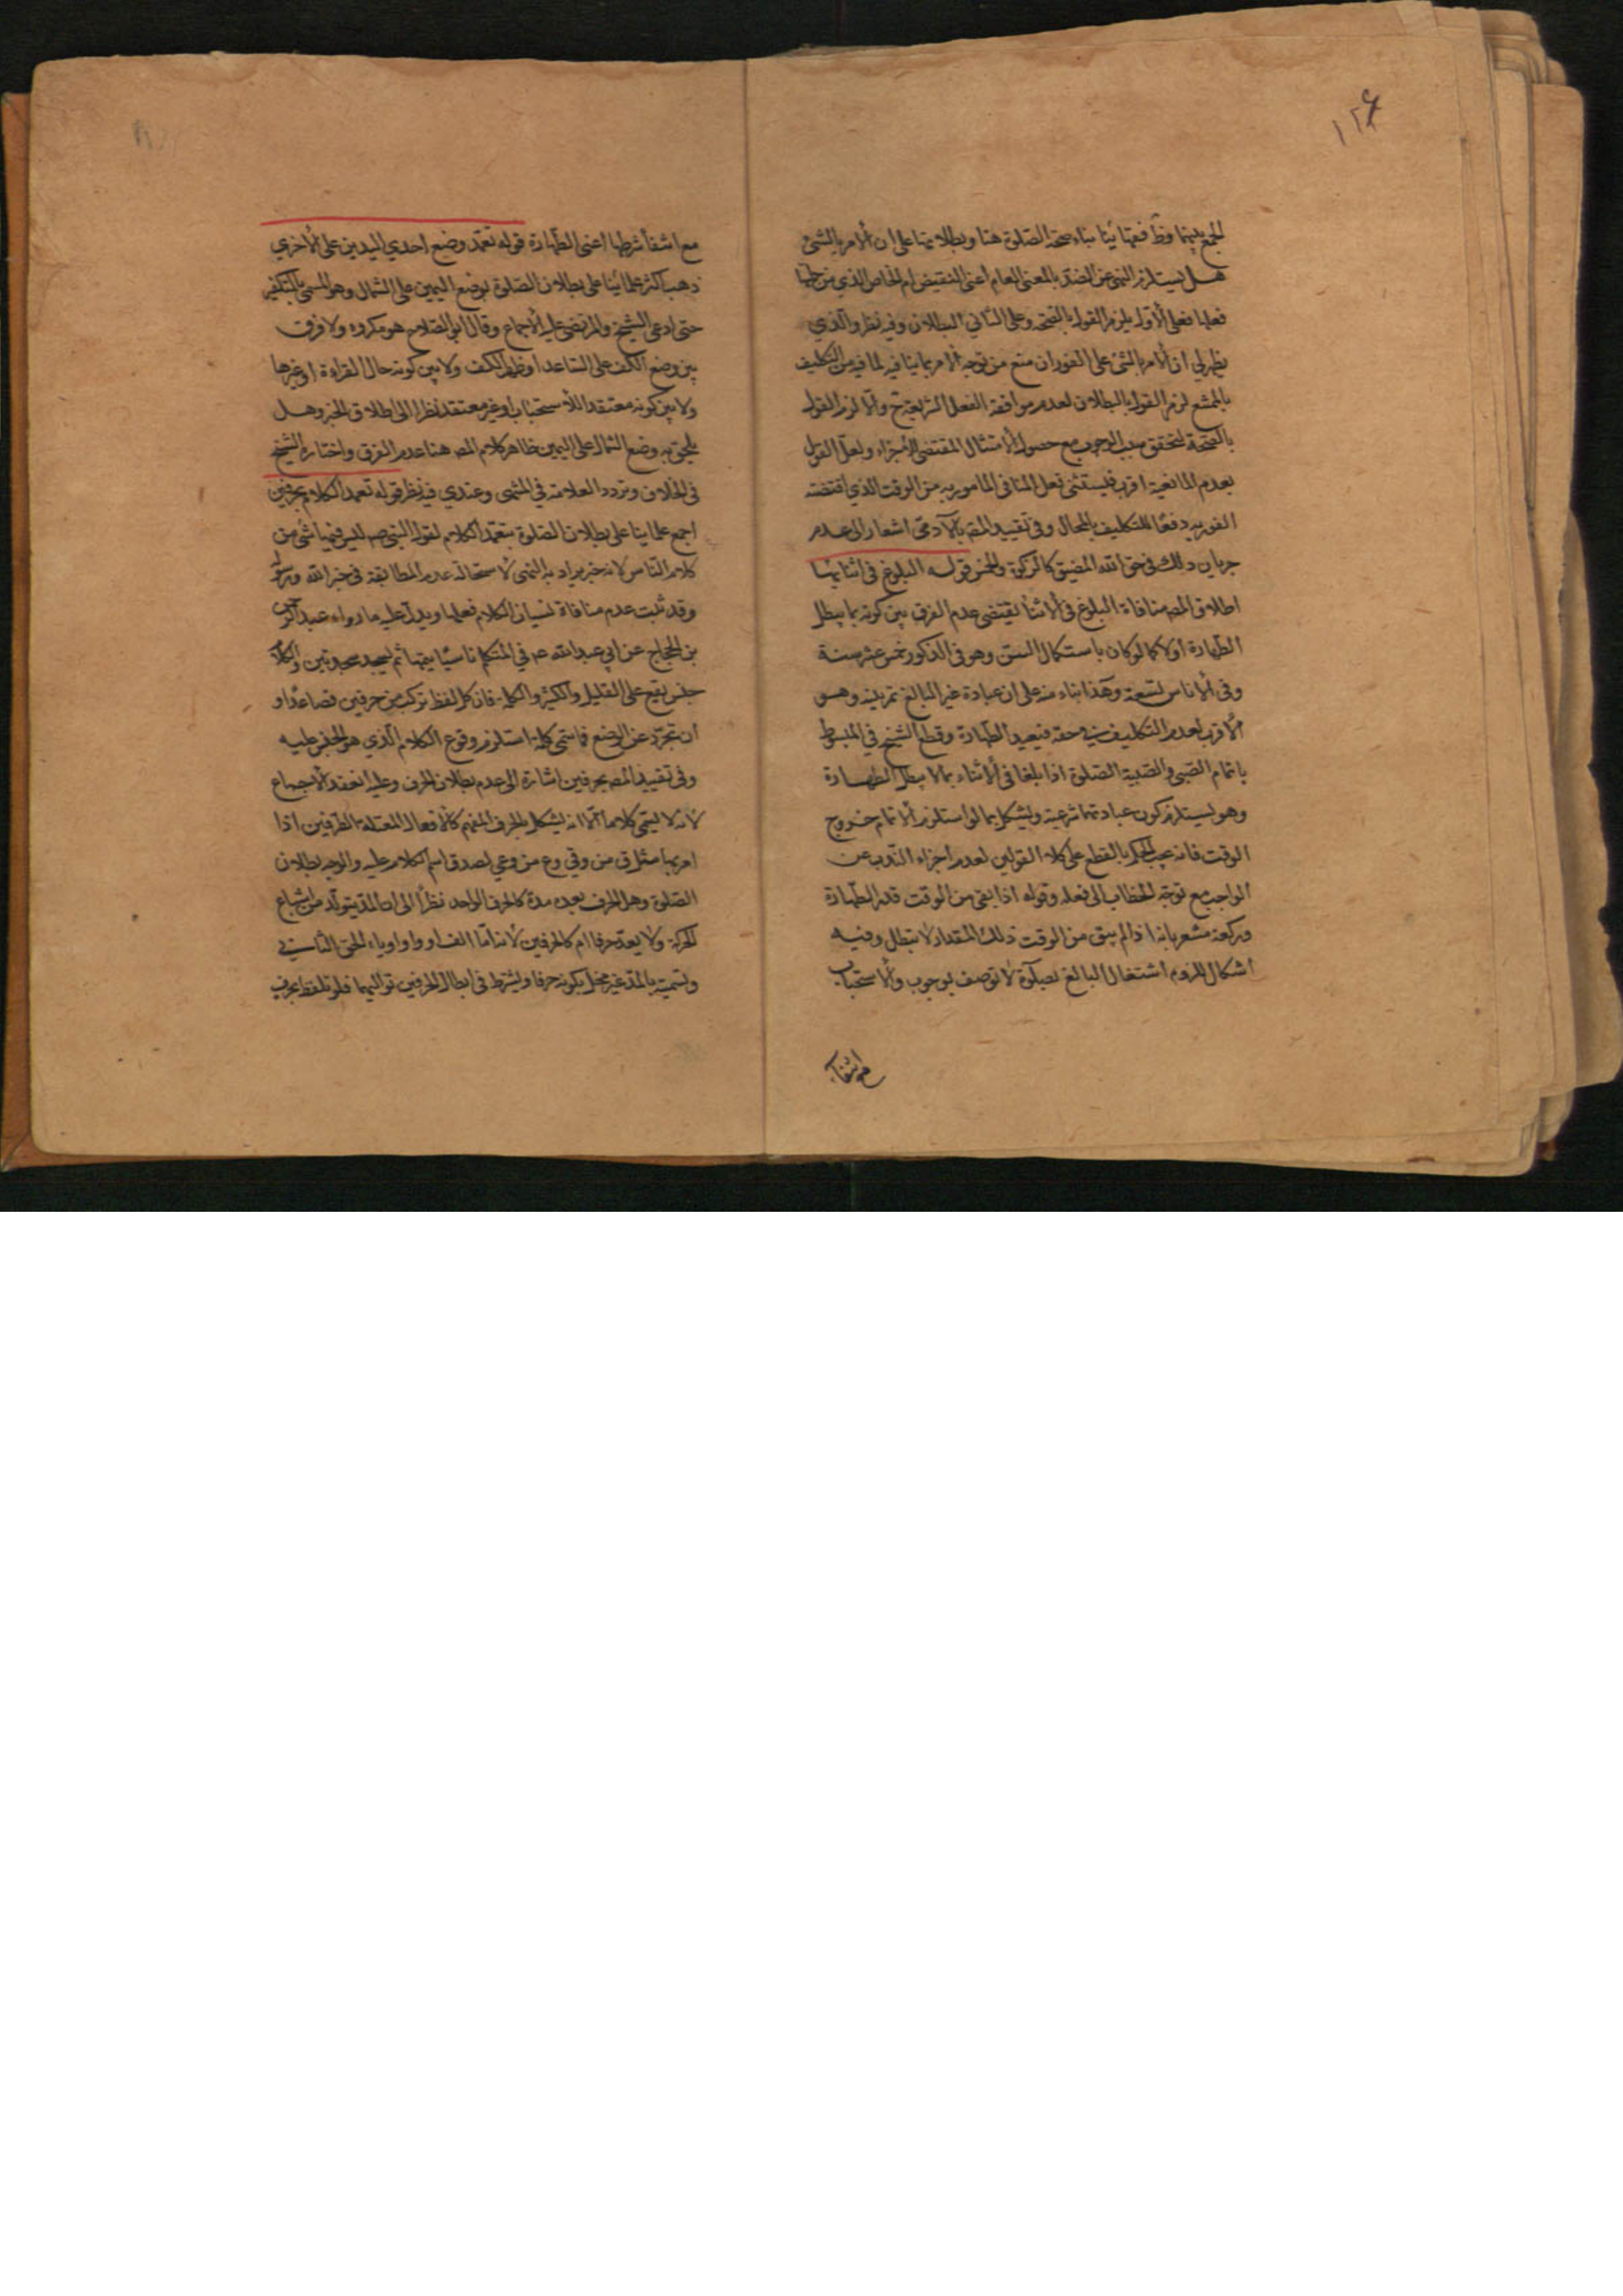 ١٢۶
الجمع بينهما وظ فقهائنا بناء صحة الصلوة هنا وبطلانها على ان الامر بالشئ
هل يستلزم النهى عن الضد بالمعنى العام اعنى النقيض ام الخاص الذي من جملتها
فعلها فعلى الأول يلزم القول بالصحة وعلى الثاني البطلان وفيه نظر والذي
يظهر لي ان الامر بالشئ على الفور ان منع من توجه الامر بما ينافيه لما فيه من التكليف
بالممتنع لزم القول بالبطلان لعدم موافقة الفعل الشريعة ح والا لزم القول
بالصحة لتحقق سبب الوجوب مع حصول الامتثال المقتضى للأجزاء ولعل القول
بعدم المانعية اقرب فيستثنى فعل المنافى المامور به من الوقت الذي اقتضته
الفورية دفعا للتكليف بالمحال وفى تقييد المصـ بالآدمى اشعار الى عدم
جريان ذلك فى حق الله المضيق كالزكوة والخمس قوله البلوغ فى اثنائها
اطلاق المصـ منافاة البلوغ فى الاثنا يقتضى عدم الفرق بين كونه بما يبطل
الطهارة اولا كما لو كان باستكمال السن وهو فى الذكور خمس عشر سنة
وفى الاناس لتسعة وهذا بناء منه على ان عبادة غير البالغ تمرينية وهو
الاقرب لعدم التكليف في حقه فيعيد الطهارة وقطع الشيخ في المبسوط
باتمام الصبى والصبية الصلوة اذا بلغا فى الاثناء بما لا يبطل الطهارة
وهو يستلزم كون عبادتهما شرعية ويشكل بما لو استلزم الاتمام خروج
الوقت فانه يجب الحكم بالقطع على كلا القولين لعدم اجزاء الندب عن
الواجب مع توجه الخطاب الى فعله وقوله اذا بقى من الوقت قدر الطهارة
وركعة مشعر بانه اذا لم يبق من الوقت ذلك المقدار لا تبطل وفيه
اشكال للزوم اشتغال البالغ بصلوة لا توصف بوجوب والاستحباب
مع اشفا
مع اشفا شرطها اعنى الطهارة قوله تعمد وضع احدي اليدين على الاخري
ذهب اكثر علمائنا على بطلان الصلوة بوضع اليمين على الشمال وهو المسمى بالتكفير
حتى ادعى الشيخ والمرتضى عليه الاجماع وقال ابو الصلاح هو مكروه ولا فرق
بين وضع الكف على الساعد او ظهر الكف ولا بين كونه حال القراءة او غيرها
ولا بين كونه معتقدا للأستحباب او غير معتقد نظرا الى اطلاق الخبر وهل
يلحق به وضع الشمال على اليمين ظاهر كلام المصـ هنا عدم الفرق واختاره الشيخ
فى الخلاف وتردد العلامة في المنتهى وعندي فيه نظر قوله تعمد الكلام بحرفين
اجمع علمائنا على بطلان الصلوة بتعمد الكلام لقول النبى صـ ليس فيها شئ من
كلام الناس لانه خبر يراد به النهى لاستحالة عدم المطابقة فى خبر الله ورسوله
وقد ثبت عدم منافاة نسيان الكلام فعلها ويدل عليه ما رواه عبد الرحمن
بن الحجاج عن ابي عبد الله عـ في المتكلم ناسيا يتمها ثم يسجد سجدتين والكلام
جنس يقع على القليل والكثير والكلمة فان كل لفظ تركب من حرفين فصاعدا و
ان تجرد عن الوضع فما سمى كلمة استلزم وقوع الكلام الذي هو الجنس عليه
وفى تقييد المصـ بحرفين اشارة الى عدم بطلان الحرف وعليه انعقد الاجماع
لانه لا يسمى كلاما الا انه يشكل بالحرف المفهم كالافعال المعتلة الطرفين اذا
امر بها مثل ق من وقي وع من وعي لصدق اسم الكلام عليه والوجه بطلان
الصلوة وهل الحرف بعده مدة كالحرف الواحد نظرا الى ان المد يتولد من اشباع
الحركة ولا يعد حرفا ام كالحرفين لانه اما الف او واو او ياء الحق الثاني
وتسميته بالمد غير مخل بكونه حرفا ويشترط فى ابطال الحرفين تواليهما فلو تلفظ بحرف